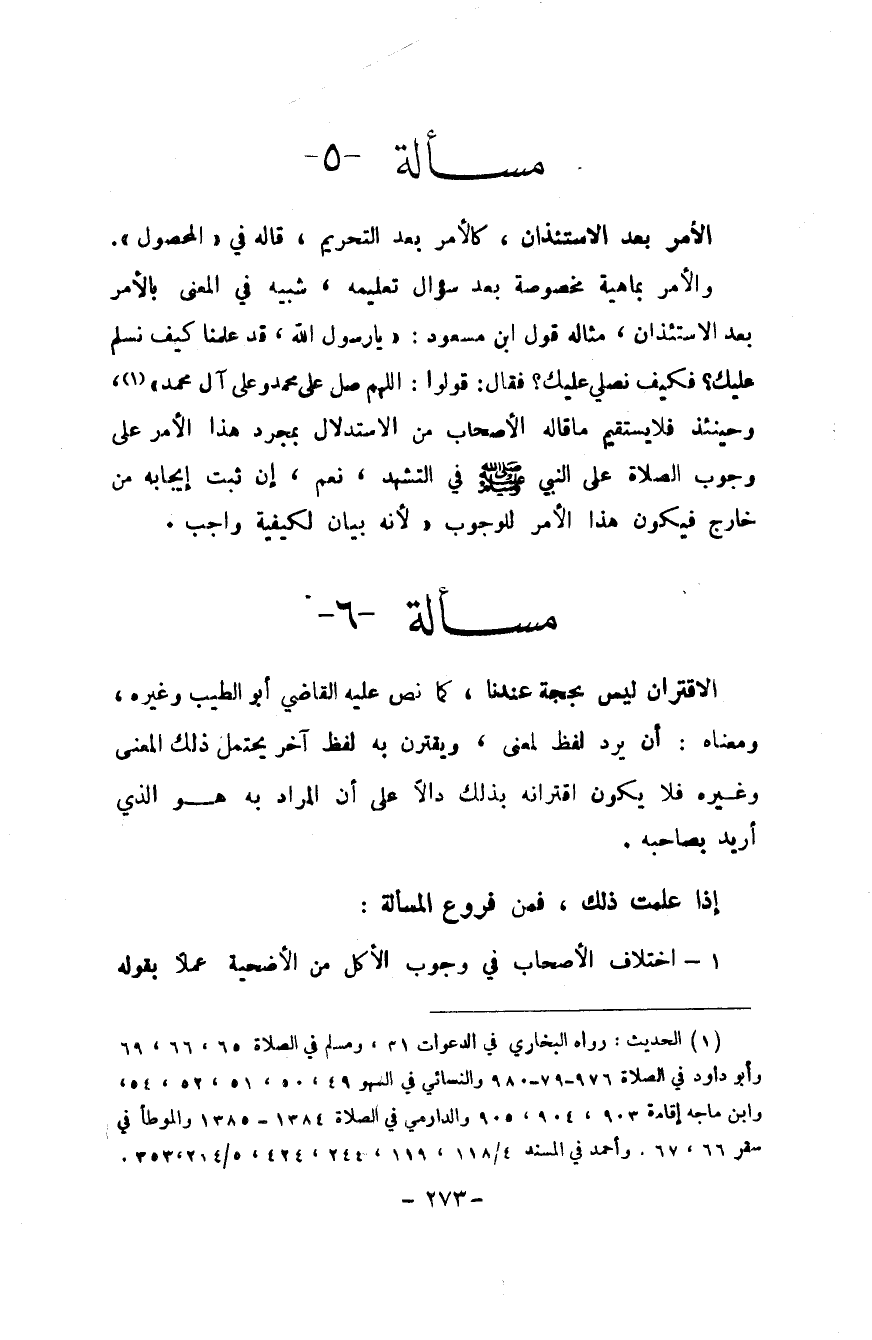 مسألة -٥-
الأمر بعد الاستئذان ، كالأمر بعد التحريم ، قاله في « المحصول ».
والأمر بماهية مخصوصة بعد سؤال تعليمه ، شبيه في المعنى بالأمر
بعد الاستئذان ، مثاله قول ابن مسعود : « يارسول الله ، قد علمنا كيف نسلم
عليك؟ فكيف نصلي عليك؟ فقال: قولوا : اللهم صل على محمد وعلى آل محمد» (١)،
وحينئذ فلايستقيم ماقاله الأصحاب من الاستدلال بمجرد هذا الأمر على
وجوب الصلاة على النبي ﷺ في التشهد ، نعم ، إن ثبت إيجابه من
خارج فيكون هذا الأمر للوجوب « لأنه بيان لكيفية واجب .
مسألة -٦-
الاقتران ليس بحجة عندنا ، كما نص عليه القاضي أبو الطيب وغيره ،
ومعناه : أن يرد لفظ لمعنى ، ويقترن به لفظ آخر يحتمل ذلك المعنى
وغيره فلا يكون اقترانه بذلك دالاً على أن المراد به هو الذي
أريد بصاحبه .
إذا علمت ذلك ، فمن فروع المسألة :
١ – اختلاف الأصحاب في وجوب الأكل من الأضحية عملاً بقوله
(١) الحديث : رواه البخاري في الدعوات ٣١ ، ومسلم في الصلاة ٦٥ ، ٦٦ ، ٦٩
وأبو داود في الصلاة ٩٧٦–٧٩–٩٨٠ والنسائي في السهو ٤٩ ، ٥٠ ، ٥١ ، ٥٢ ، ٥٤،
وابن ماجه إقامة ٩٠٣ ، ٩٠٤ ، ٩٠٥ والدارمي في الصلاة ١٣٨٤ – ١٣٨٥ والموطأ في
سفر ٦٦ ، ٦٧ . وأحمد في المسند ١١٨/٤ ، ١١٩ ، ٢٤٤ ، ٤٢٤ ، ٢١٤/٥،٣٥٣ .
– ٢٧٣ –